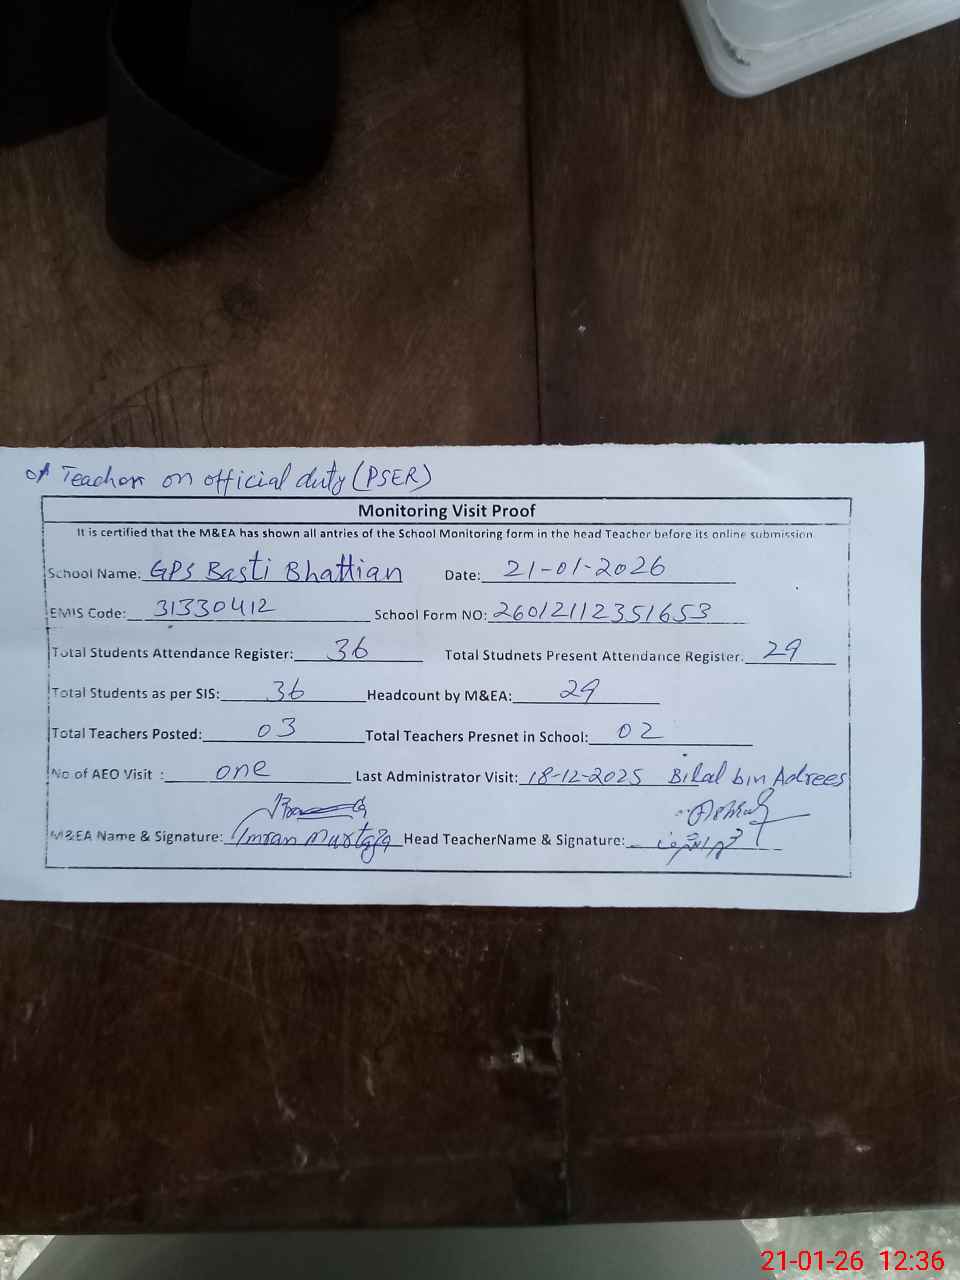 01 Teacher on official duty (PSER)
Monitoring Visit Proof
It is certified that the M&EA has shown all antries of the School Monitoring form in the head Teacher before its online submission
School Name: GPS Basti Bhattian Date: 21-01-2026
EMIS Code: 31330412 School Form NO: 26012112351653
Total Students Attendance Register: 36 Total Studnets Present Attendance Register. 29
Total Students as per SIS: 36 Headcount by M&EA: 29
Total Teachers Posted: 03 Total Teachers Presnet in School: 02
No of AEO Visit : one Last Administrator Visit: 18-12-2025 Bilal bin Adrees
M&EA Name & Signature: Imran Murtaza Head TeacherName & Signature:
21-01-26 12:36